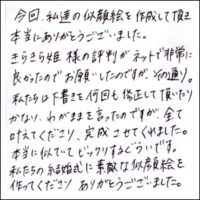 今回、私達の似顔絵を作成して頂き
本当にありがとうございました。
きらきら姫様の評判がネットで非常に
良かったのでお願いしたのですが、その通り。
私たちは下書きを何回も修正して頂いたり
かなり、わがままを言ったのですが、全て
叶えてくださり、完成させてくれました。
本当に似ていてビックリするぐらいです。
私たちの結婚式に素敵な似顔絵を
作ってくださりありがとうございました。